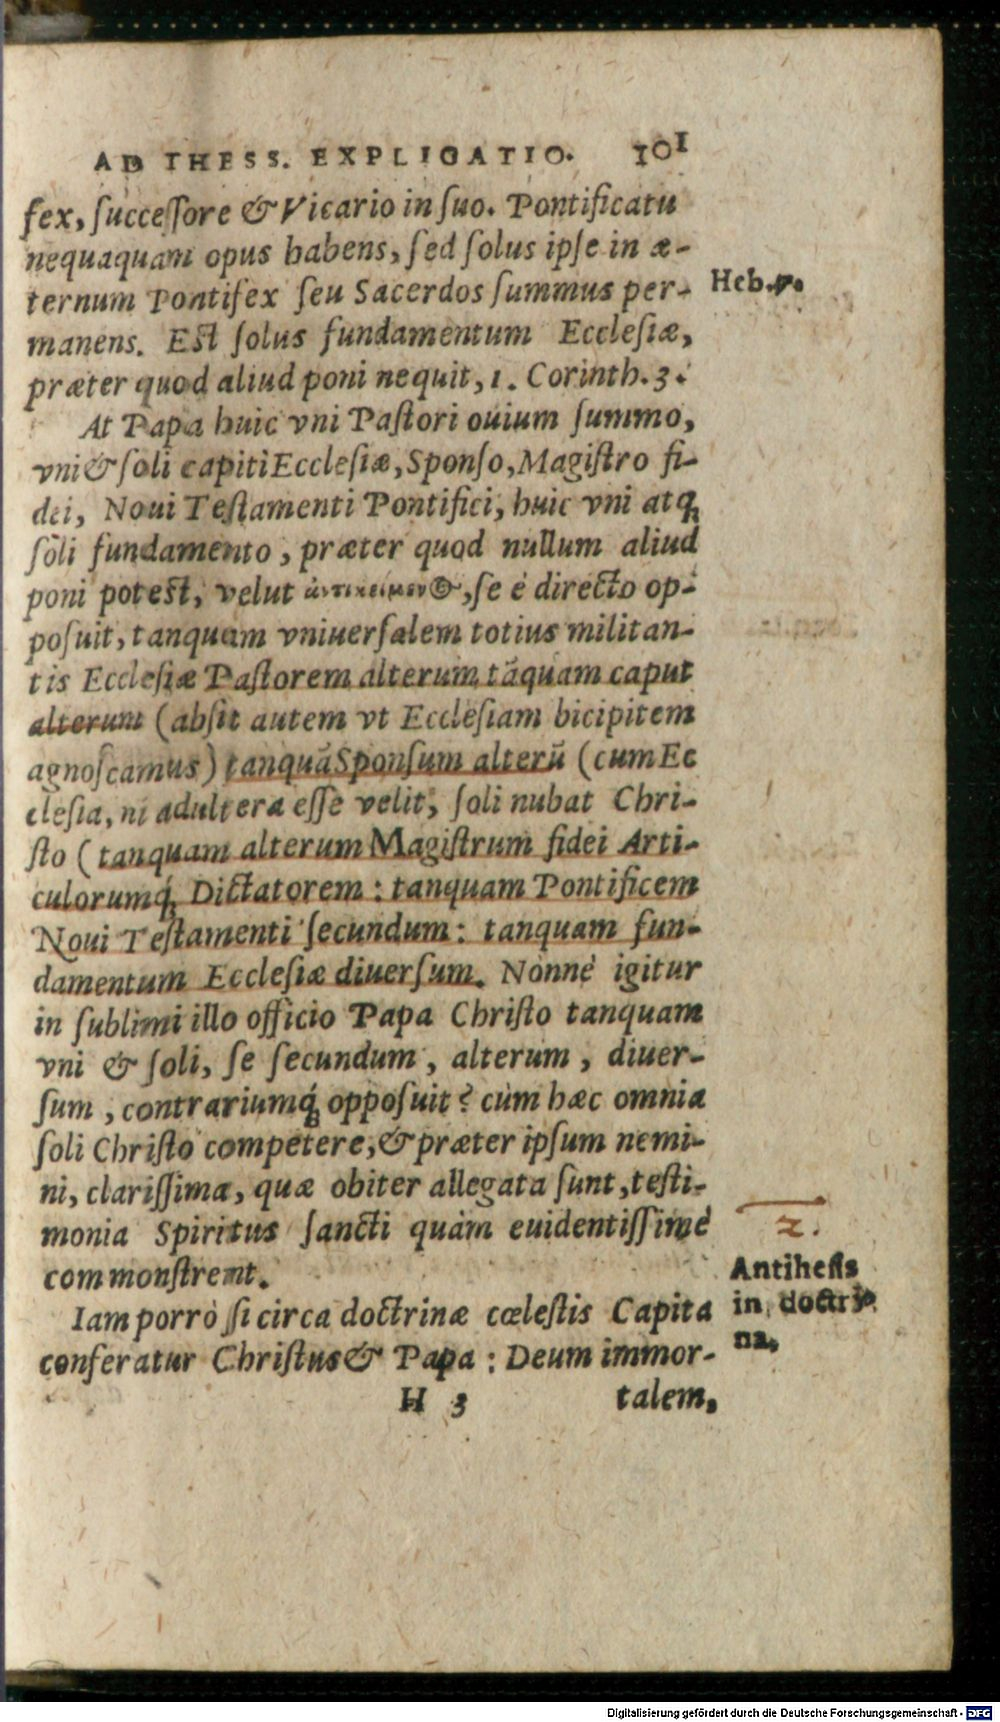 AD THESS. EXPLICATIO. 101
fex, successore & Vicario in suo. Pontificatu
nequaquam opus habens, sed solus ipse in æ-
ternum Pontifex seu Sacerdos summus per-
Heb.7.
manens. Est solus fundamentum Ecclesiæ,
præter quod aliud poni nequit, 1. Corinth. 3.
At Papa huic vni Pastori ouium summo,
vni & soli capiti Ecclesiæ, Sponso, Magistro fi-
dei, Noui Testamenti Pontifici, huic vni atq́;
soli fundamento, præter quod nullum aliud
poni potest, velut ἀντικείμενος, se è directo op-
posuit, tanquam vniuersalem totius militan-
tis Ecclesiæ Pastorem alterum, tãquam caput
alterum (absit autem vt Ecclesiam bicipitem
agnoscamus) tanquã Sponsum alterũ (cum Ec
clesia, ni adultera esse velit, soli nubat Chri-
sto (tanquam alterum Magistrum fidei Arti-
culorumq́; Dictatorem: tanquam Pontificem
Noui Testamenti secundum: tanquam fun-
damentum Ecclesiæ diuersum. Nonnè igitur
in sublimi illo officio Papa Christo tanquam
vni & soli, se secundum, alterum, diuer-
sum, contrariumq́; opposuit? cùm hæc omnia
soli Christo competere, & præter ipsum nemi-
ni, clarissima, quæ obiter allegata sunt, testi-
monia Spiritus sancti quàm euidentissimè
commonstrent.
2.
Antihesis
in doctri-
na.
Iam porrò si circa doctrinæ cœlestis Capita
conferatur Christus & Papa: Deum immor-
H 3 talem,
Digitalisierung gefördert durch die Deutsche Forschungsgemeinschaft - DFG